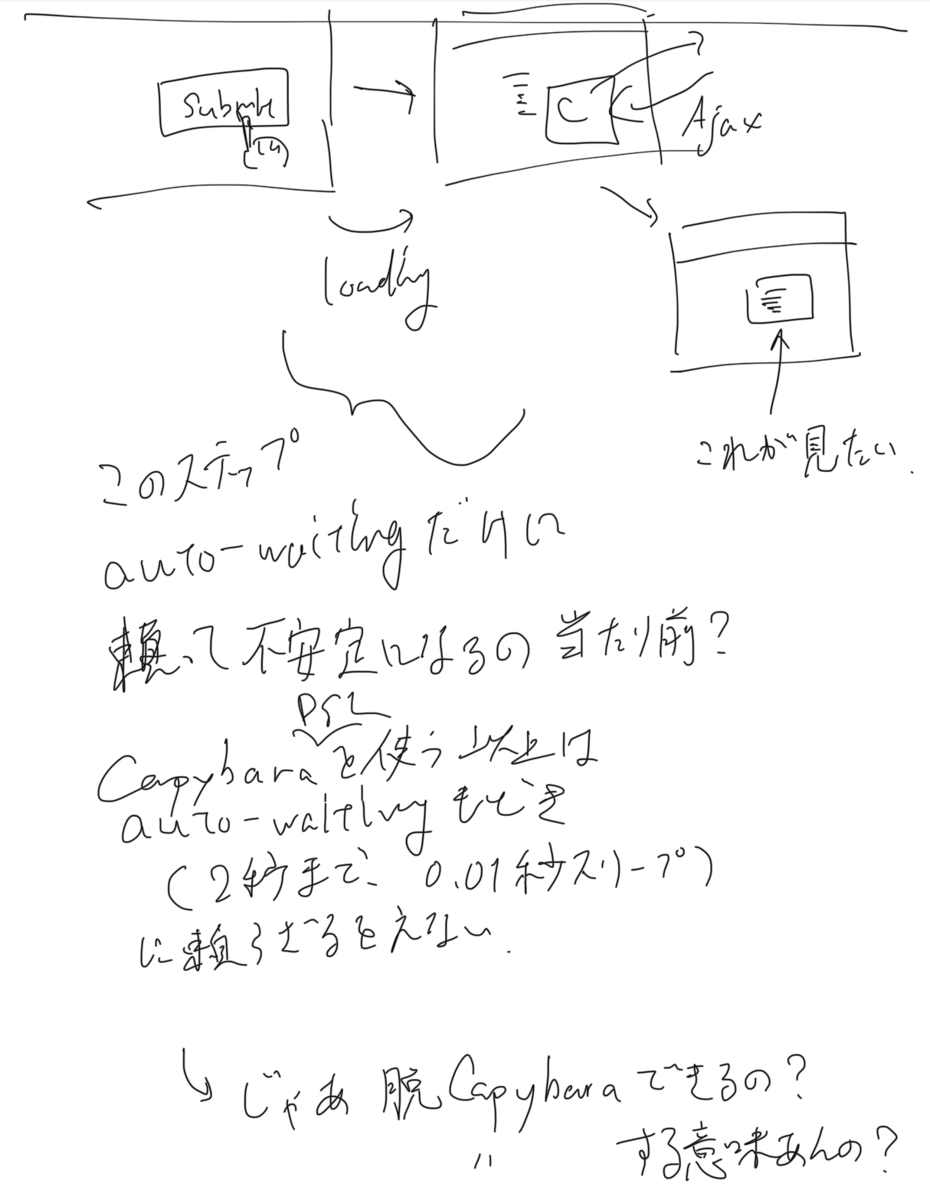 Submit
C
Ajax
loading
これが見たい.
このステップ
auto-waitingだけに
頼って不安定になるの当たり前?
DSL
Capybaraを使う以上は
auto-waitingもどき
(2秒まで、0.01秒スリープ)
に頼らざるをえない.
じゃあ 脱Capybaraできるの?
する意味あんの?
〃